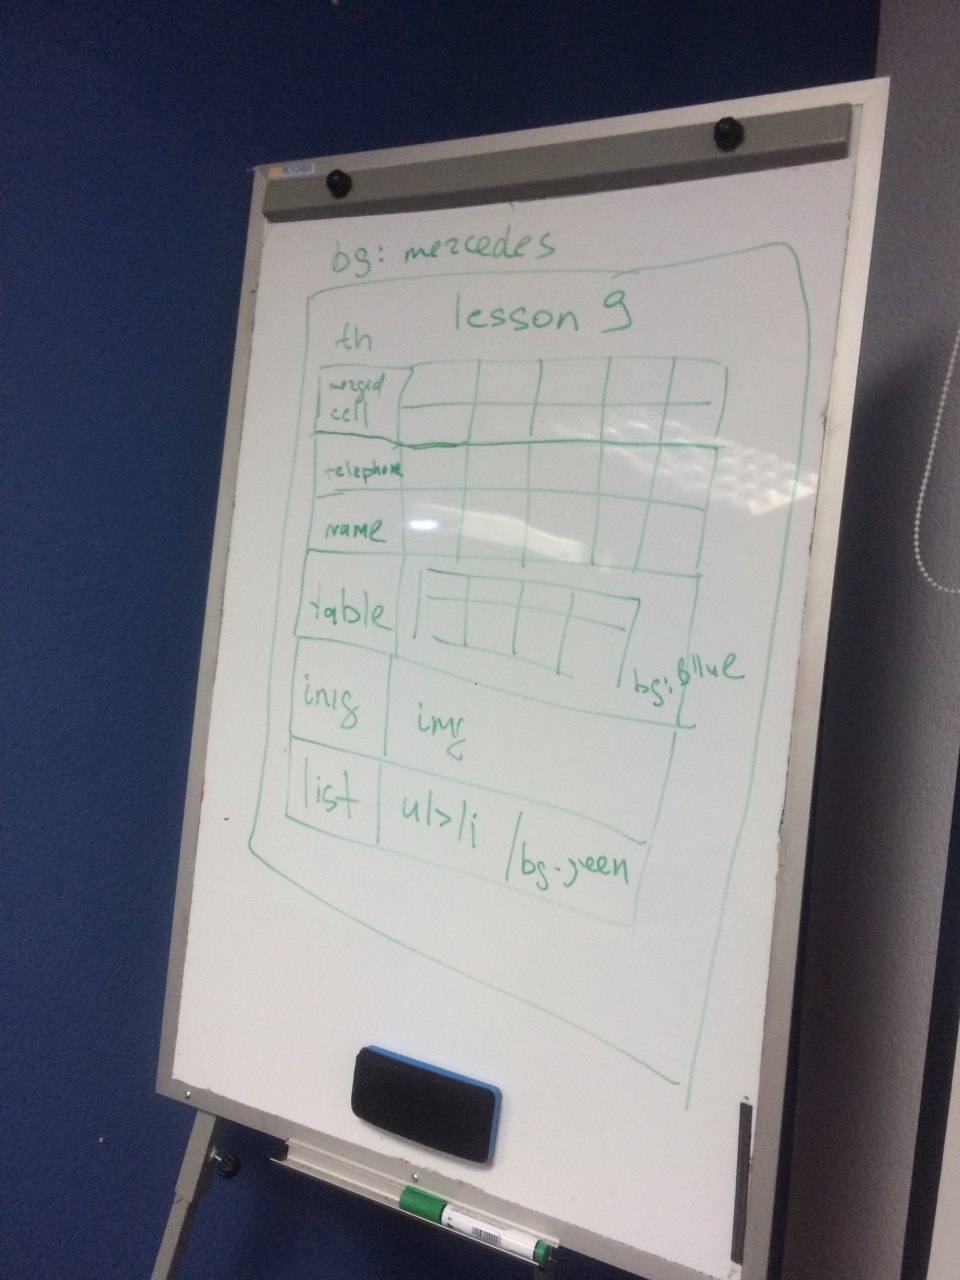 bg: mercedes
lesson 9
th
merged
cell
telephone
name
table
bg: blue
img
img
list
ul>li
bg: green